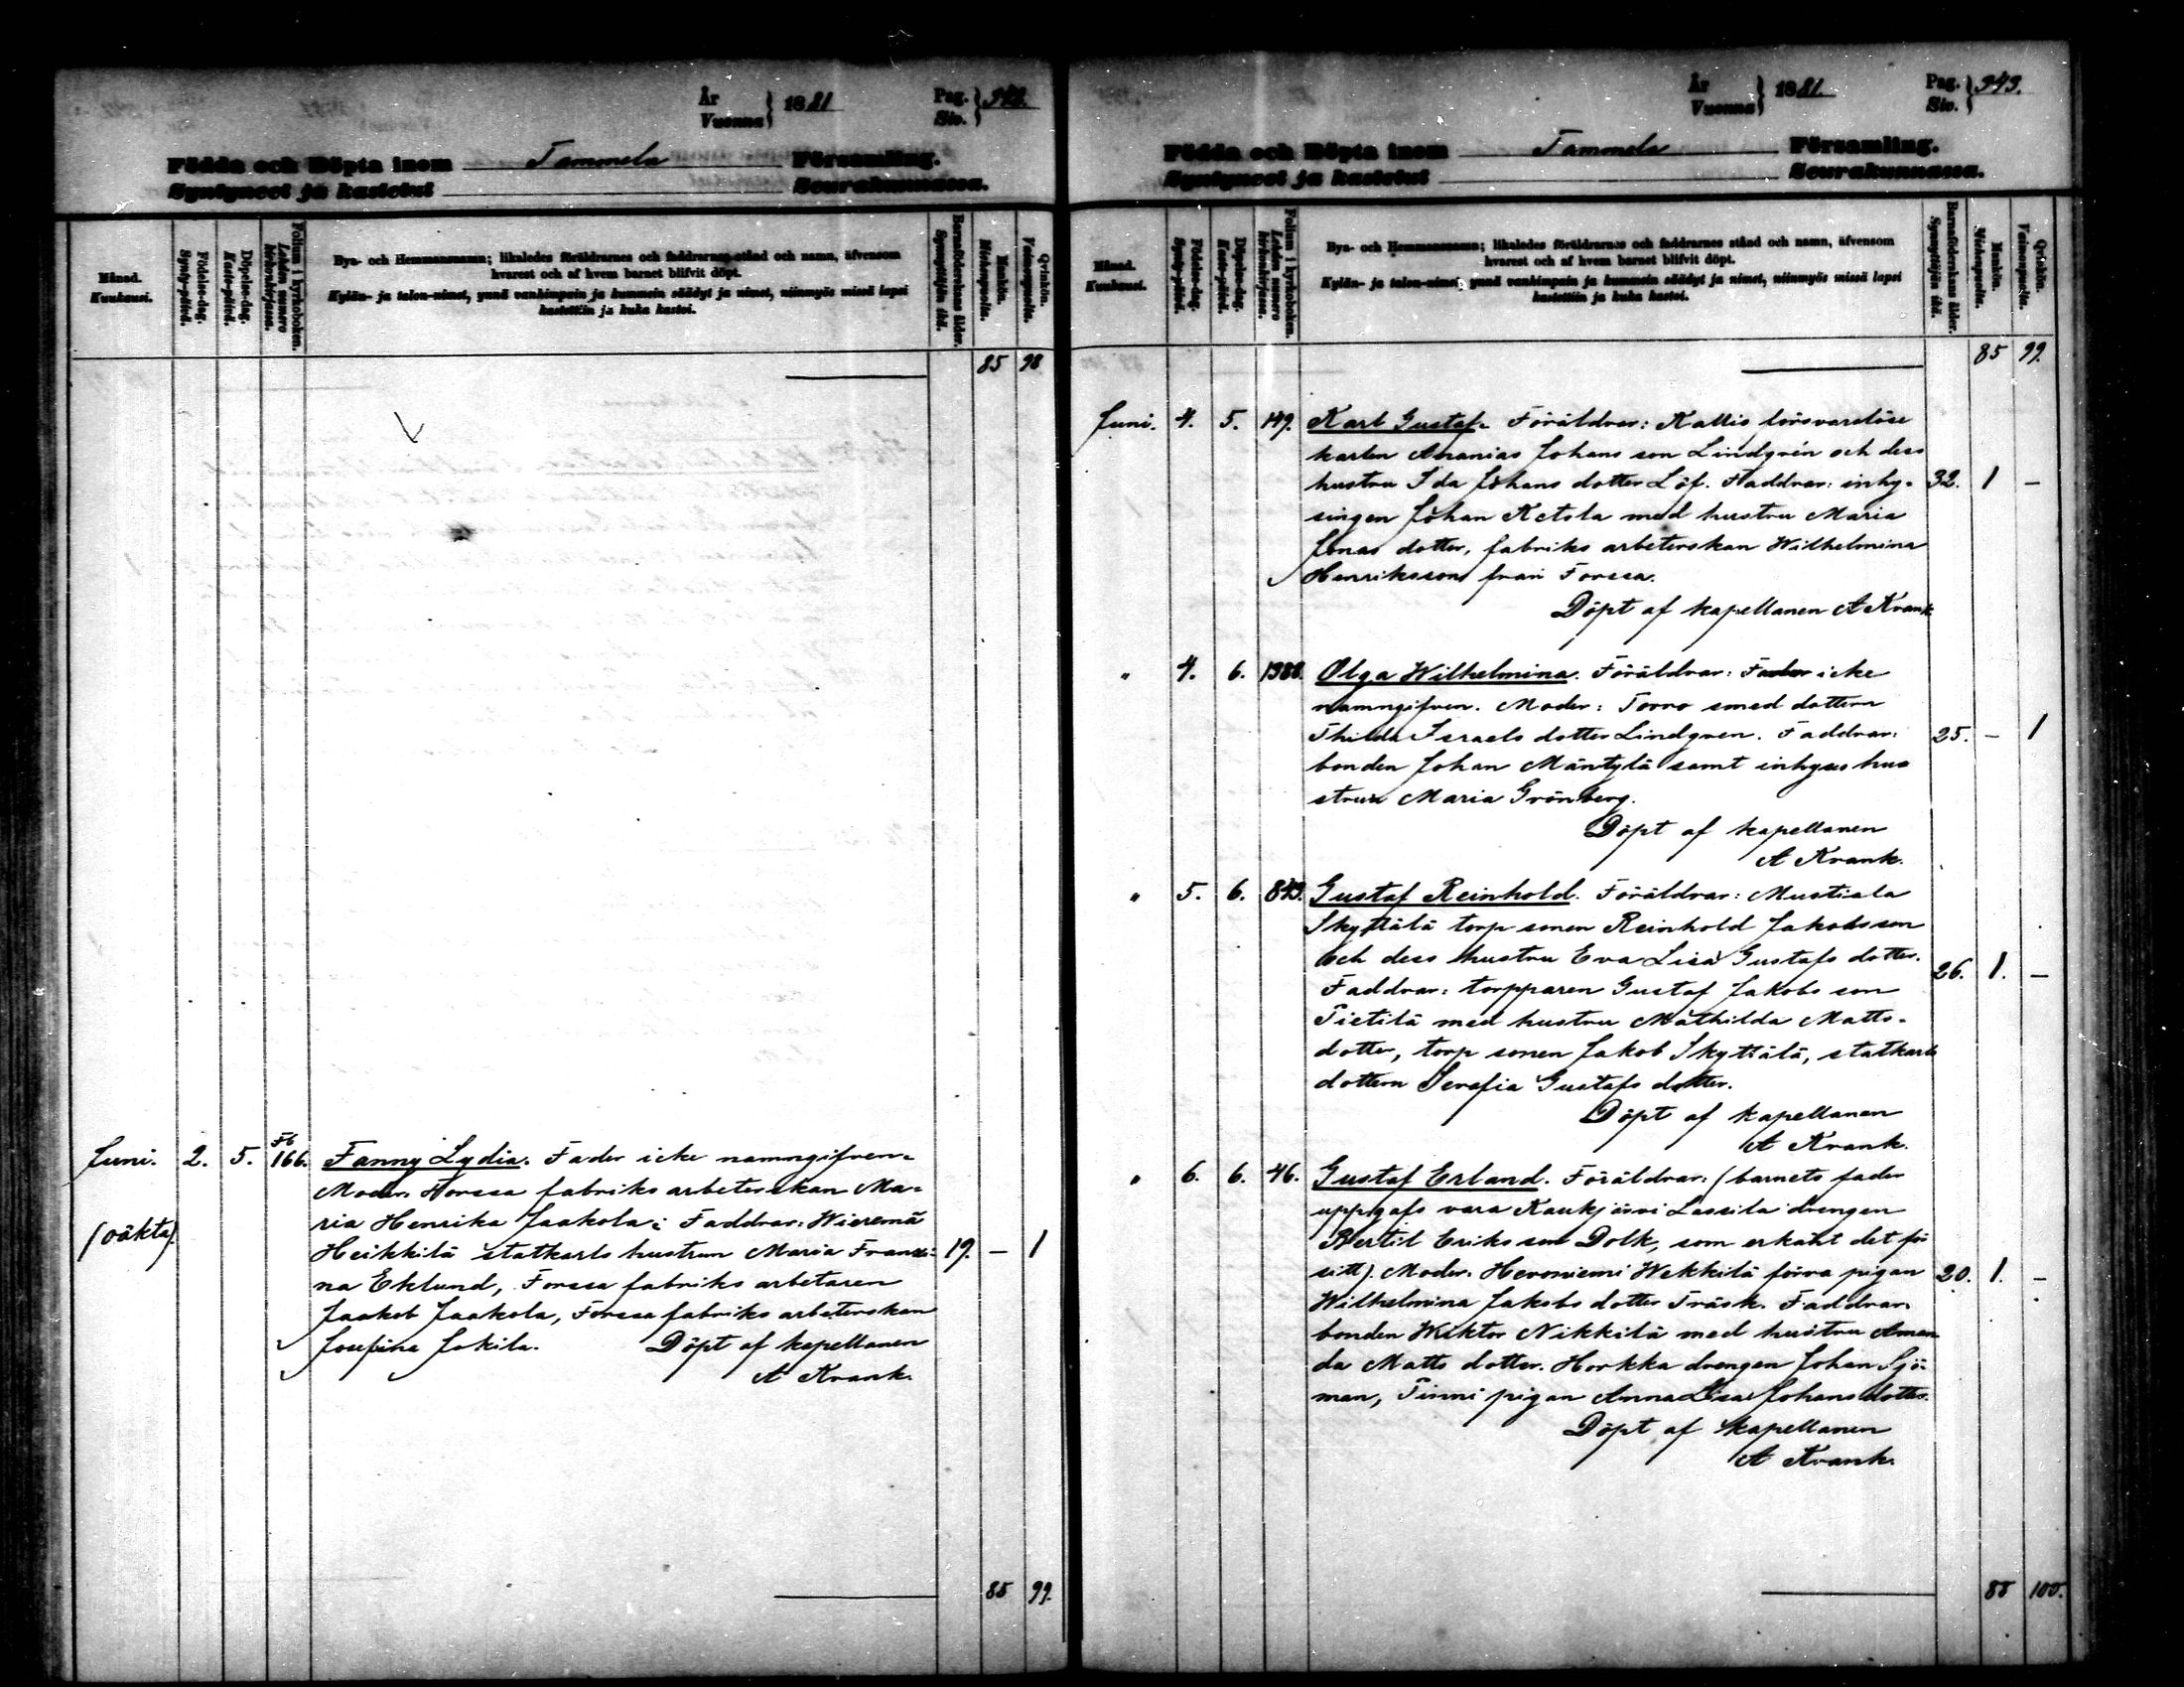 År
Vuonna } 1881
Pag.
Siv. } 342.
Födda och Döpta inom Tammela Församling.
Syntyneet ja kastetut Seurakunnassa.
Månad.
Kuukausi.
Födelse-dag.
Synty-päivä.
Döpelse-dag.
Kaste-päivä.
Folium i kyrkoboken.
Lehden numero kirkonkirjassa.
Bya- och Hemmansnamn; likaledes föräldrarnes och faddrarnes stånd och namn, äfvensom
hvarest och af hvem barnet blifvit döpt.
Kylän- ja talon-nimet, ynnä vanhimpain ja kummein säädyt ja nimet, niinmyös missä lapsi
kastettiin ja kuka kastoi.
Barnaföderskans ålder.
Synnyttäjän ikä.
Mankön.
Miehenpuolta.
Qvinkön.
Vaimonpuolta.
85 98
Juni. 2. 5. Fb 166. Fanny Lydia. Fader icke namngifven.
Moder: Forssa fabriks arbeterskan Ma-
ria Henrika Jaakola; Faddrar: Wieremä
(oäkta).
Heikkilä statkarls hustrun Maria Fransi- 19. — 1
na Eklund, Forssa fabriks arbetaren
Jaakob Jaakola, Forssa fabriks arbeterskan
Josefina Jokila. Döpt af kapellanen
A Krank.
85 99.
År
Vuonna } 1881.
Pag.
Siv. } 343.
Födda och Döpta inom Tammela Församling.
Syntyneet ja kastetut Seurakunnassa.
Månad.
Kuukausi.
Födelse-dag.
Synty-päivä.
Döpelse-dag.
Kaste-päivä.
Folium i kyrkoboken.
Lehden numero kirkonkirjassa.
Bya- och Hemmansnamn; likaledes föräldrarnes och faddrarnes stånd och namn, äfvensom
hvarest och af hvem barnet blifvit döpt.
Kylän- ja talon-nimet, ynnä vanhimpain ja kummein säädyt ja nimet, niinmyös missä lapsi
kastettiin ja kuka kastoi.
Barnaföderskans ålder.
Synnyttäjän ikä.
Mankön.
Miehenpuolta.
Qvinkön.
Vaimonpuolta.
85 99.
Juni. 4. 5. 149. Karl Gustaf. Föräldrar: Kallio försvarslöse
karlen Ananias Johans son Lindgrén och dess
hustru Ida Johans dotter Löf. Faddrar: inhy- 32. 1 —
singen Johan Ketola med hustru Maria
Jonas dotter, fabriks arbeterskan Wilhelmina
Henriksson från Forssa.
Döpt af kapellanen A Krank
" 4. 6. 1388. Olga Wilhelmina. Föräldrar: Fader icke
namngifven. Moder: Torro smed dottern
Thilda Israels dotter Lindgren. Faddrar: 25. — 1
bonden Johan Mäntylä samt inhyses hu-
strun Maria Grönberg.
Döpt af kapellanen
A Krank.
" 5. 6. 849. Gustaf Reinhold. Föräldrar: Mustiala
Skyttälä torp sonen Reinhold Jakobsson
och dess hustru Eva Lisa Gustafs dotter. 26. 1. —
Faddrar: torpparen Gustaf Jakobs son
Pietilä med hustru Mathilda Matts-
dotter, torp sonen Jakob Skyttälä, statkarls
dottern Serafia Gustafs dotter.
Döpt af kapellanen
A Krank.
" 6. 6. 46. Gustaf Erland. Föräldrar: (barnets fader
uppgafs vara Kaukjärvi Lassila drengen
Bertil Eriks son Dolk, som erkänt det för
sitt). Moder: Heroniemi Wekkilä förra pigan 20. 1. —
Wilhelmina Jakobs dotter Träsk. Faddrar:
bonden Wiktor Nikkilä med hustru Aman-
da Matts dotter. Horkka drengen Johan Sjö-
man, Finni pigan Anna Lisa Johans dotter.
Döpt af kapellanen
A Krank.
88 100.